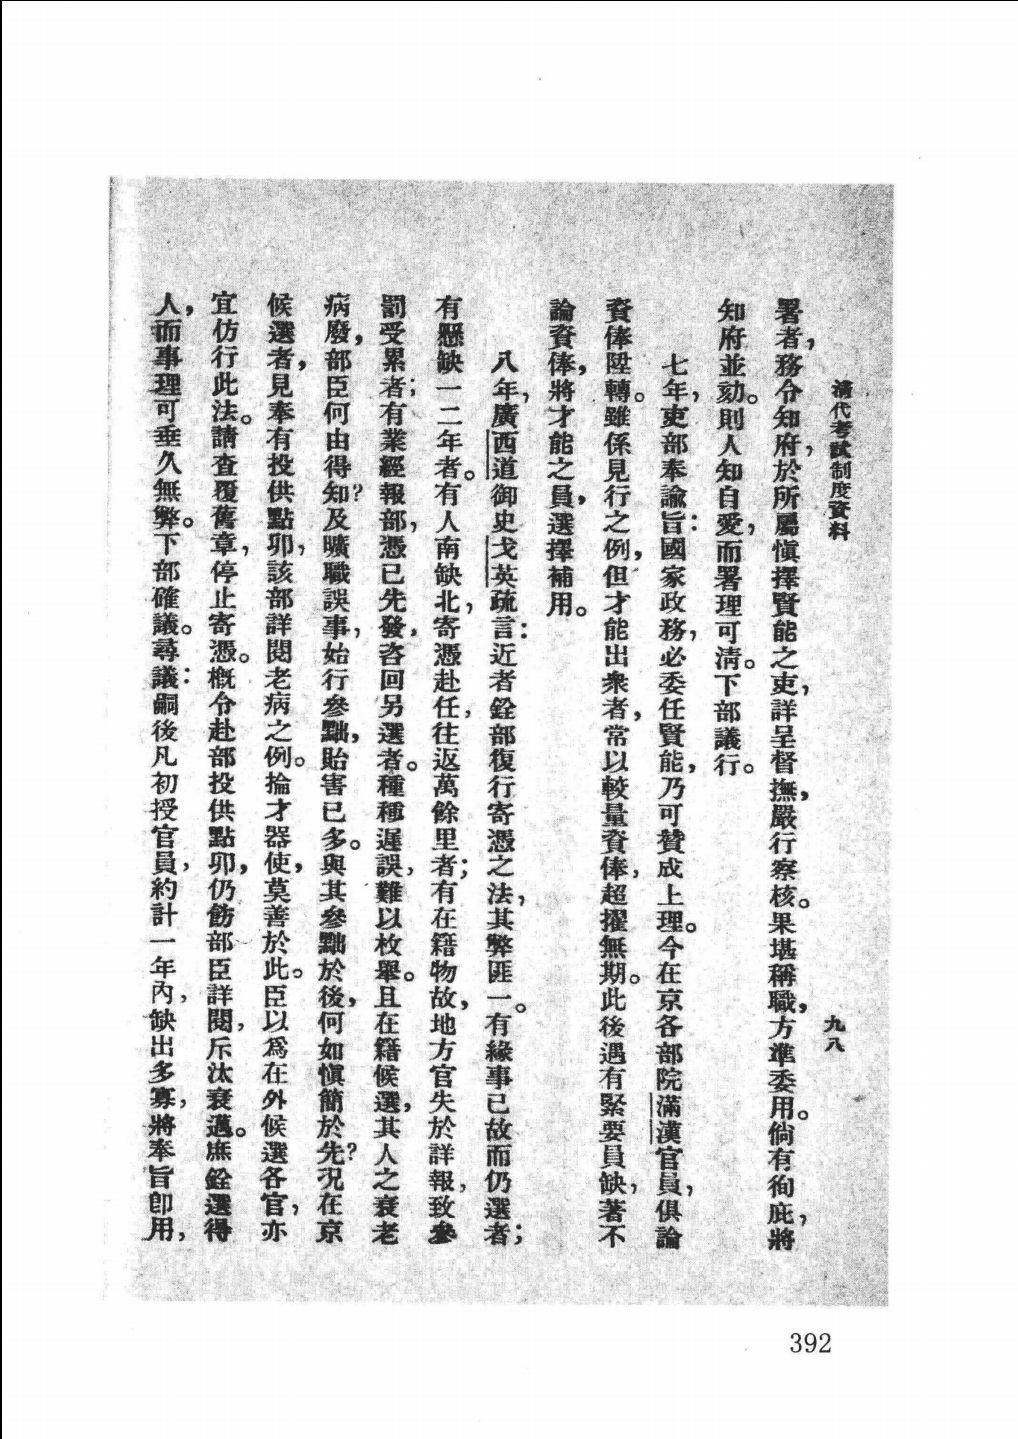 清代考試制度資料
九八
署者，務令知府於所屬愼擇賢能之吏，詳呈督撫，嚴行察核。果堪稱職，方準委用。倘有徇庇，將
知府並劾。則人知自愛，而署理可淸。下部議行。
七年，吏部奉諭旨：國家政務，必委任賢能，乃可贊成上理。今在京各部院滿漢官員，俱論
資俸陞轉。雖係見行之例，但才能出衆者，常以較量資俸，超擢無期。此後遇有緊要員缺，著不
論資俸，將才能之員，選擇補用。
八年，廣西道御史戈英疏言：近者銓部復行寄憑之法，其弊匪一。有緣事已故而仍選者；
有懸缺一二年者。有人南缺北，寄憑赴任，往返萬餘里者；有在籍物故，地方官失於詳報，致參
罰受累者；有業經報部，憑已先發，咨回另選者。種種遲誤，難以枚舉。且在籍候選，其人之衰老
病廢，部臣何由得知？及曠職誤事，始行參黜，貽害已多。與其參黜於後，何如愼簡於先？況在京
候選者，見奉有投供點卯，該部詳閱老病之例。掄才器使，莫善於此。臣以爲在外候選各官，亦
宜仿行此法。請查覆舊章，停止寄憑。槪令赴部投供點卯，仍飭部臣詳閱，斥汰衰邁。庶銓選得
人，而事理可垂久無弊。下部確議。尋議：嗣後凡初授官員，約計一年內，缺出多寡，將奉旨卽用，
392